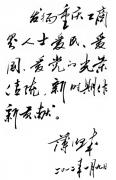 发扬重庆工商
界人士爱民、爱
国、爱党的光荣
传统，新时期作
新贡献。
二〇〇二年一月九日